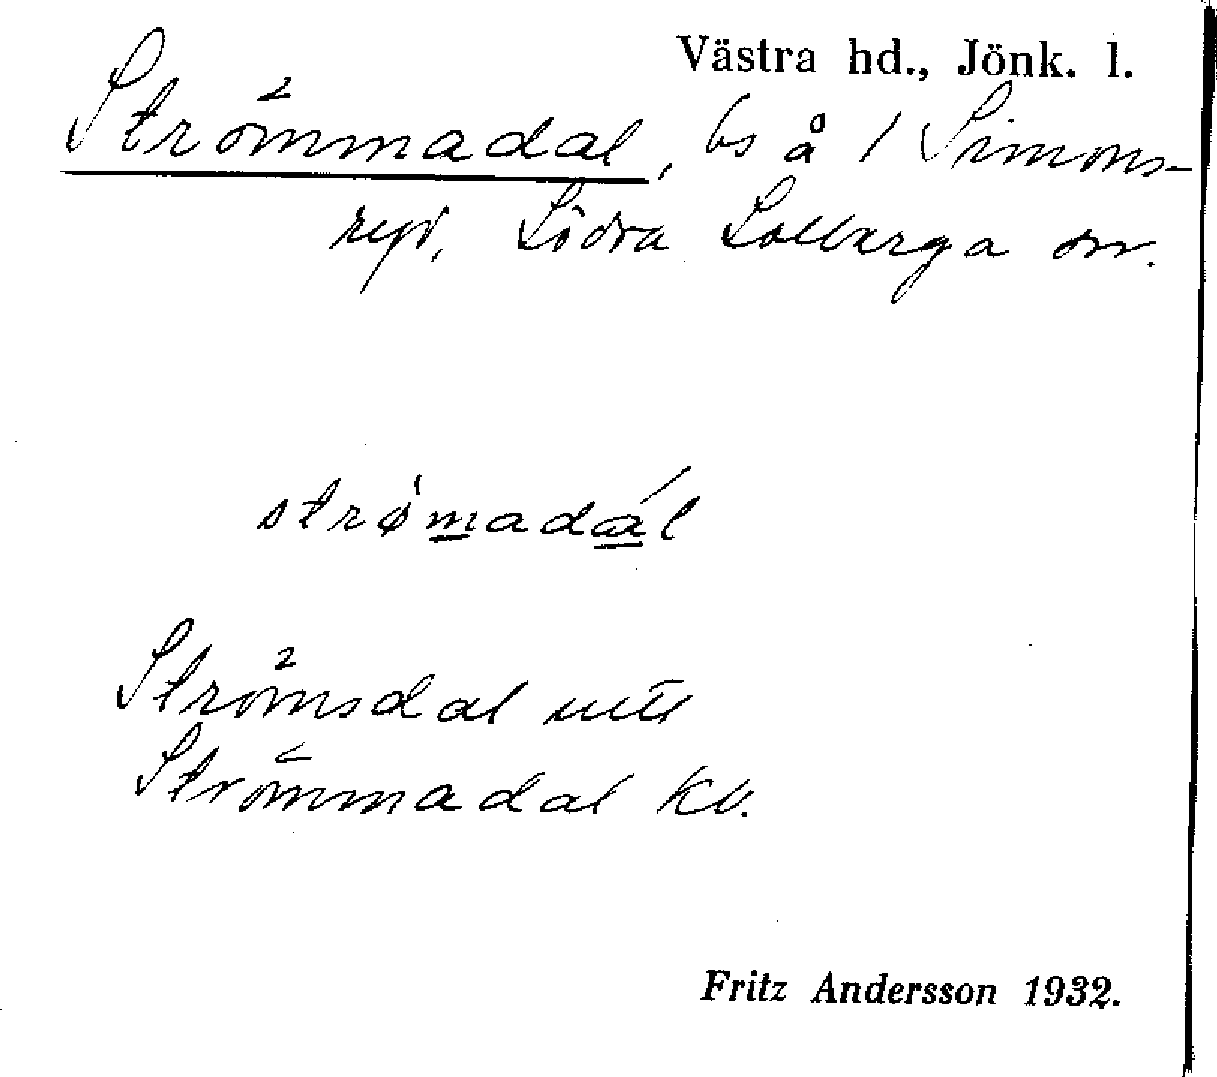 Västra hd., Jönk. l.
Strömmadal, bs å 1 Simons-
ryd, Södra Solberga sn.
strø̀madál
Strömsdal
Strömmadal kb.
Fritz Andersson 1932.